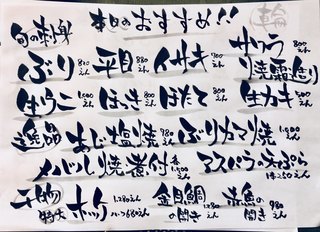 本日のおすすめ!!
旬の刺身
ぶり 880えん 平目 880えん イサキ 700えん サワラ 800えん 焼霜造り
生ウニ 1,000えん ほっき 800えん ほたて 800えん 生カキ 500えん
逸品 あじ塩焼 980えん ぶりカマ焼 1,000えん
メバル 焼 煮付 各 1,500えん アスパラの天ぷら
干物 特大 ホッケ 1,280えん ハーフ680えん 金目鯛の開き 1280えん 赤魚の開き 980えん